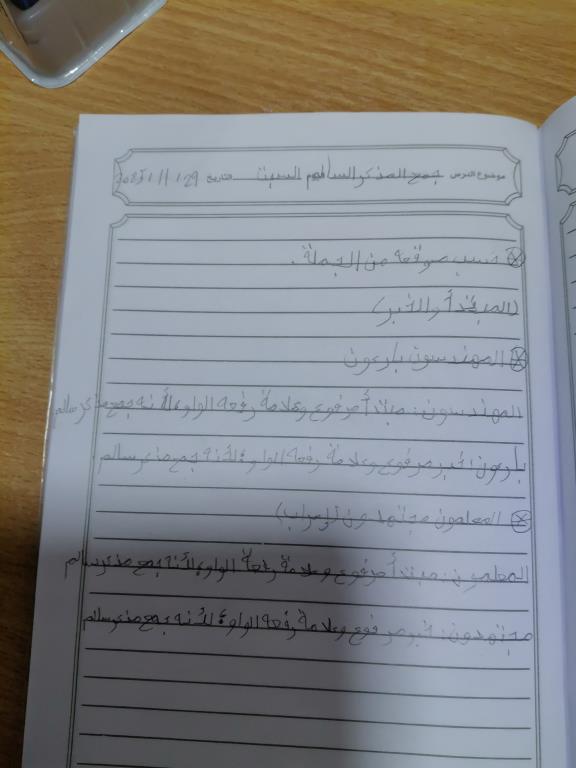 موضوع الدرس جمع المذكر السالم السبت التاريخ 29 / 11 /
حسب موقعه من الجملة .
(المبتدأ والخبر)
المهندسون بارعون
المهندسون : مبتدأ مرفوع وعلامة رفعه الواو ؛ لأنه جمع مذكر سالم
بارعون : خبر مرفوع وعلامة رفعه الواو ؛ لأنه جمع مذكر سالم .
المعلمون مجتهدون (إعراب)
المعلمون : مبتدأ مرفوع وعلامة رفعة الواو ؛ لأنه جمع مذكر سالم
مجتهدون : خبر مرفوع وعلامة رفعه الواو ؛ لأنه جمع مذكر سالم